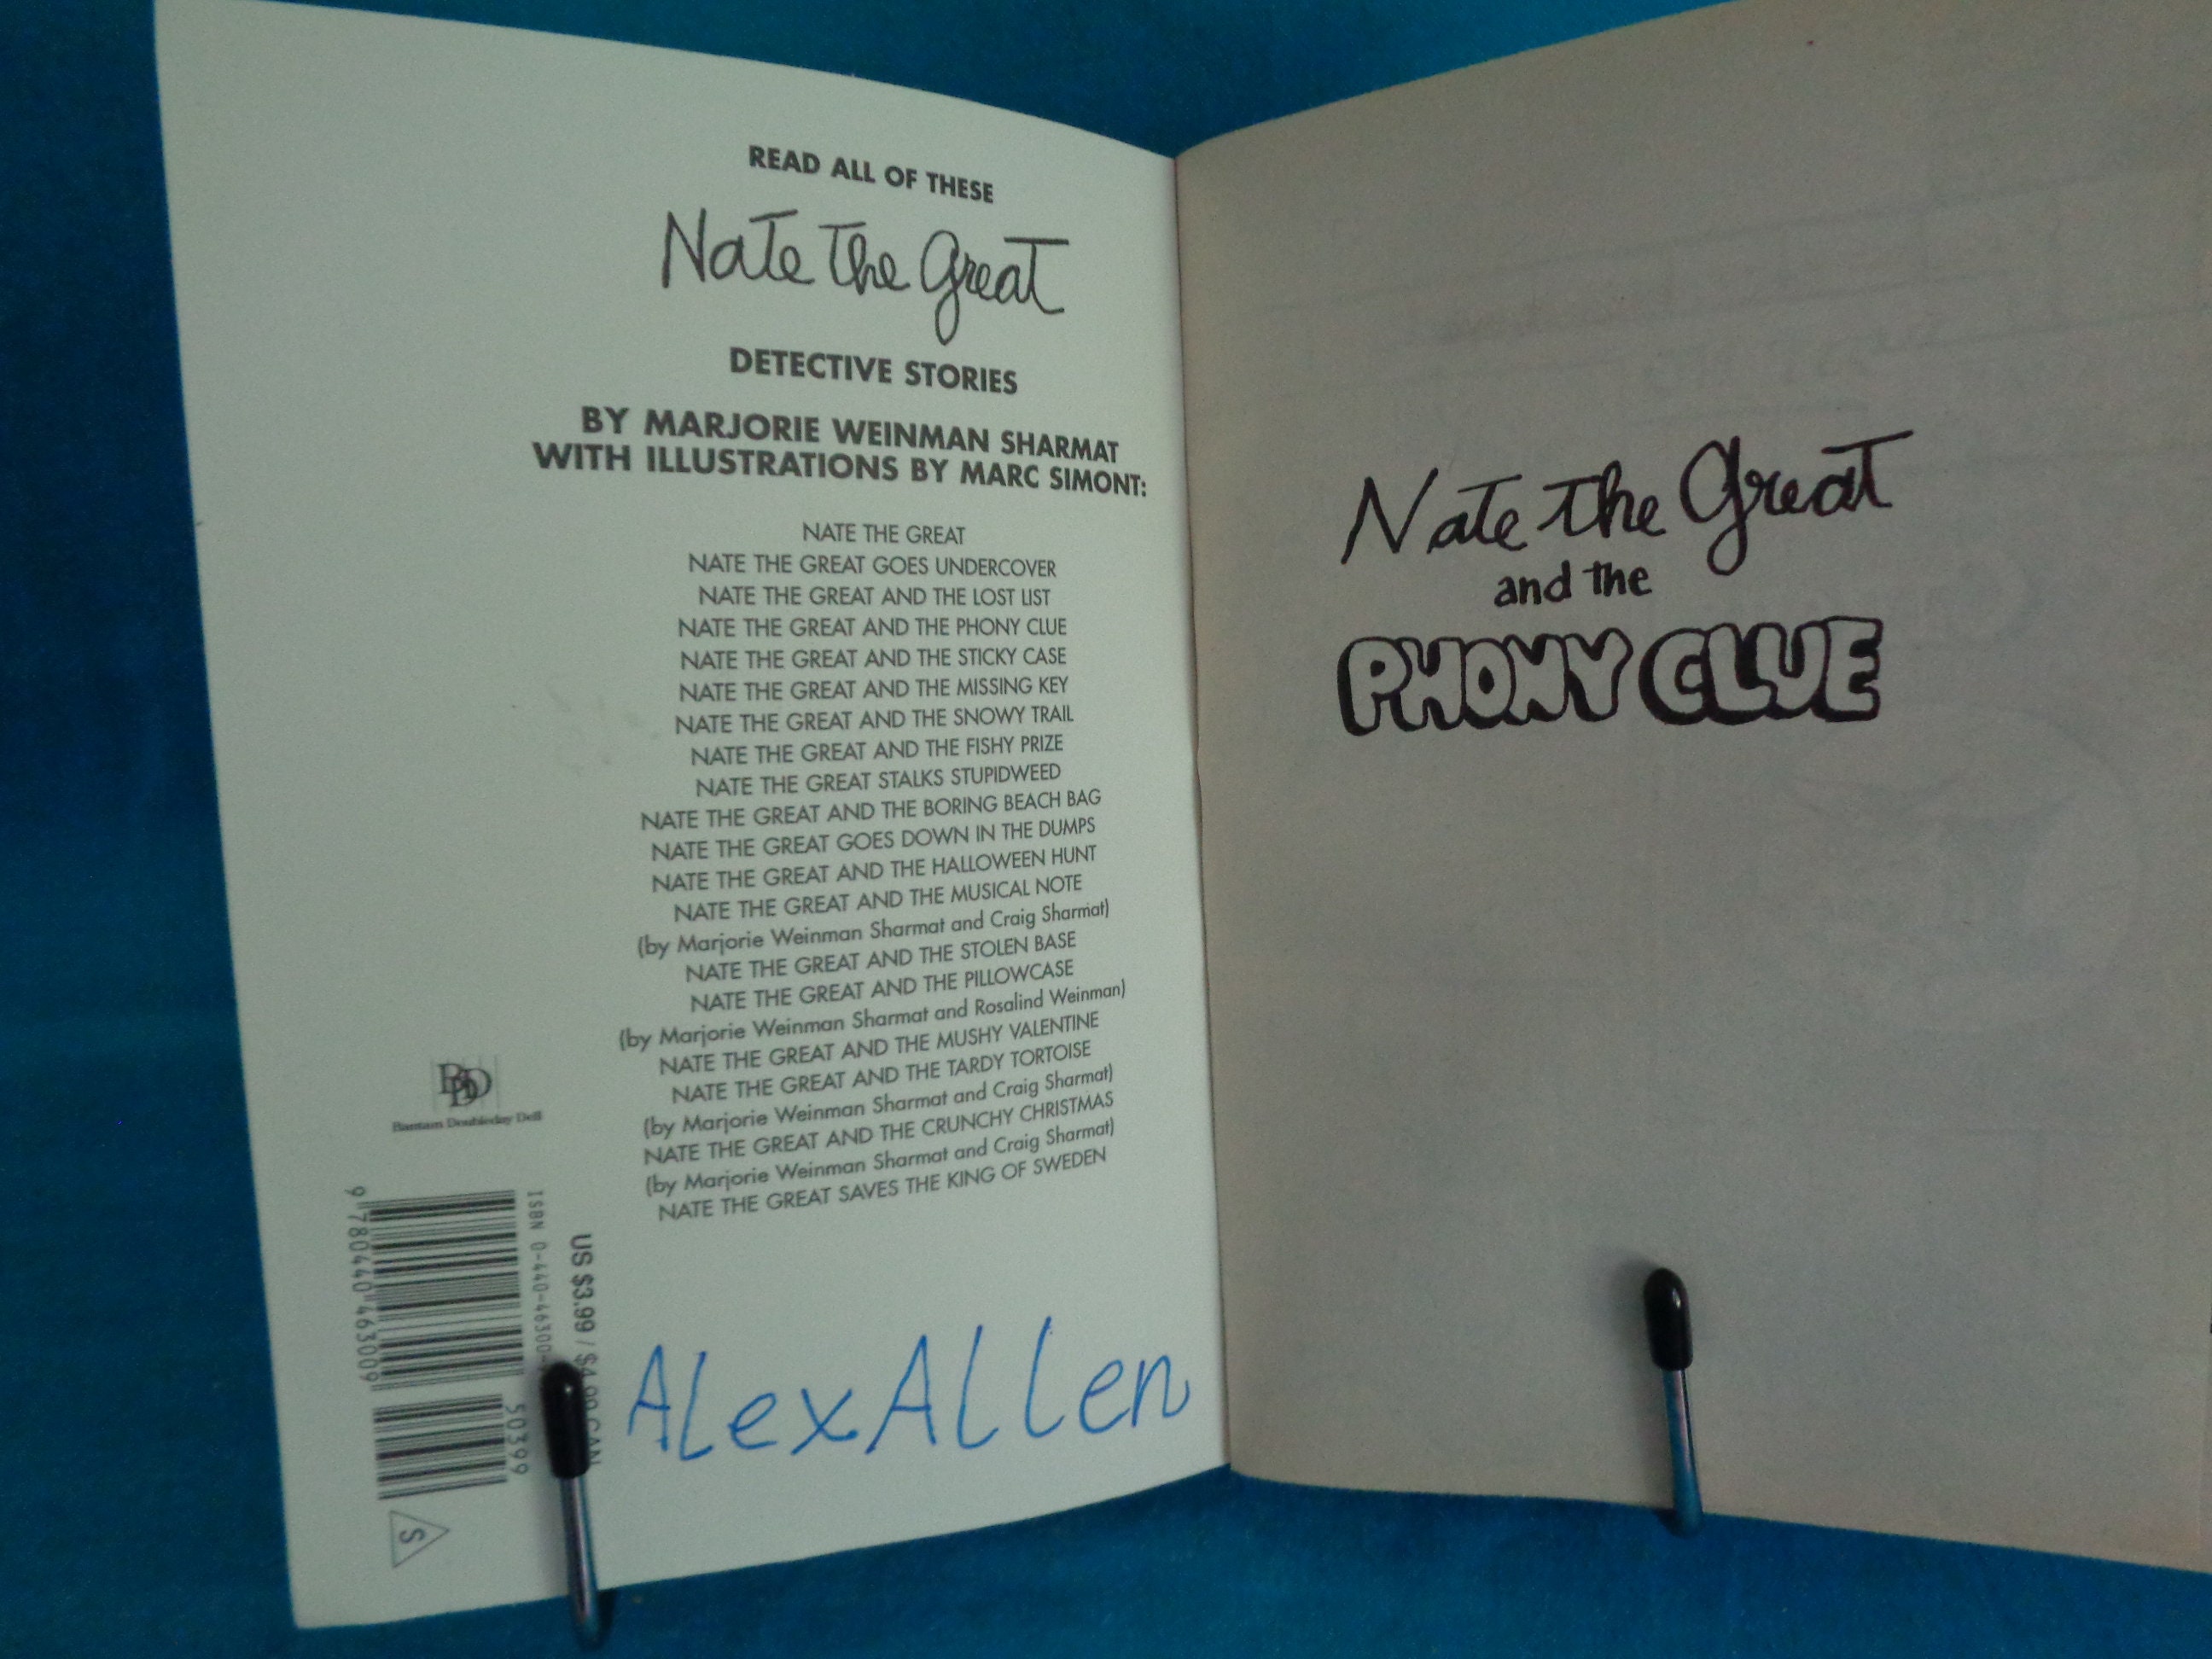 READ ALL OF THESE
Nate the Great
DETECTIVE STORIES
BY MARJORIE WEINMAN SHARMAT
WITH ILLUSTRATIONS BY MARC SIMONT:
NATE THE GREAT
NATE THE GREAT GOES UNDERCOVER
NATE THE GREAT AND THE LOST LIST
NATE THE GREAT AND THE PHONY CLUE
NATE THE GREAT AND THE STICKY CASE
NATE THE GREAT AND THE MISSING KEY
NATE THE GREAT AND THE SNOWY TRAIL
NATE THE GREAT AND THE FISHY PRIZE
NATE THE GREAT STALKS STUPIDWEED
NATE THE GREAT AND THE BORING BEACH BAG
NATE THE GREAT GOES DOWN IN THE DUMPS
NATE THE GREAT AND THE HALLOWEEN HUNT
NATE THE GREAT AND THE MUSICAL NOTE
(by Marjorie Weinman Sharmat and Craig Sharmat)
NATE THE GREAT AND THE STOLEN BASE
NATE THE GREAT AND THE PILLOWCASE
(by Marjorie Weinman Sharmat and Rosalind Weinman)
NATE THE GREAT AND THE MUSHY VALENTINE
NATE THE GREAT AND THE TARDY TORTOISE
(by Marjorie Weinman Sharmat and Craig Sharmat)
NATE THE GREAT AND THE CRUNCHY CHRISTMAS
(by Marjorie Weinman Sharmat and Craig Sharmat)
NATE THE GREAT SAVES THE KING OF SWEDEN
BDD
Bantam Doubleday Dell
US $3.99 / $4.99 CAN
ISBN 0-440-46300-
9 780440 463009
50399
S
ALex ALLen
Nate the Great
and the
PHONY CLUE